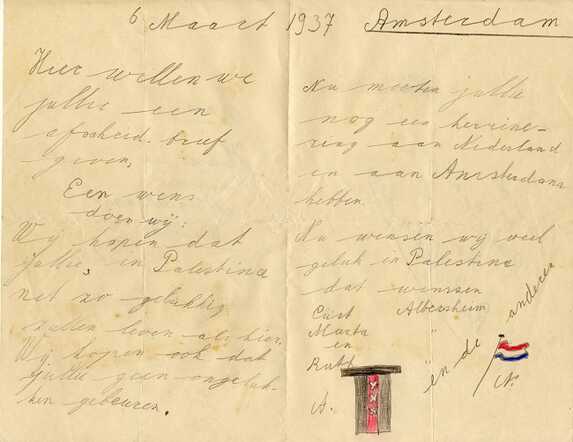 6 Maart 1937 Amsterdam
Hier willen we
jullie een
afscheid. brief
geven,
Een wens
doen wij:
Wij hopen dat
jullie, in Palestina
net zo gelukkig
zullen leven als hier.
Wij hopen ook dat
jullie geen ongeluk-
ken gebeuren.
Nu moeten jullie
nog een herrine-
ring aan Nederland
en aan Amsterdam
hebben.
Nu wensen wij veel
geluk in Palestina
dat wenssen
Curt Albersheim
Marta
en
Ruth
en de anderen
A.
N.